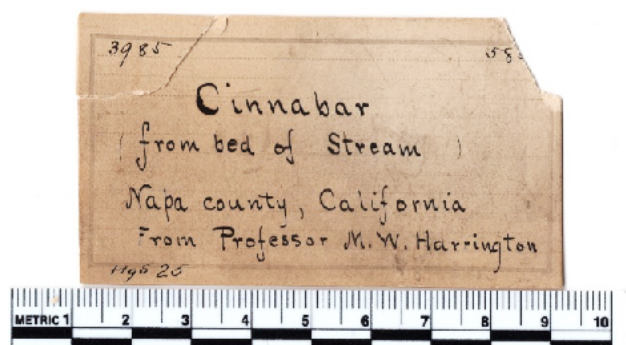 3985
Cinnabar
(from bed of Stream)
Napa county, California
From Professor M. W. Harrington
METRIC 1 2 3 4 5 6 7 8 9 10